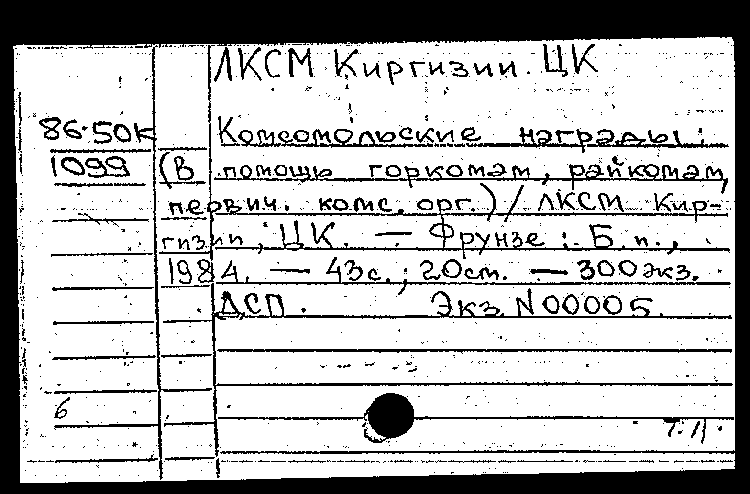 ЛКСМ Киргизии. ЦК
86-50К
1099
Комсомольские награды:
(В помощь горкомам, райкомам,
первич. комс. орг.) / ЛКСМ Кир-
гизии, ЦК. — Фрунзе: Б.и.,
1984. — 43с.; 20см. — 300экз.
ДСП. Экз. N00005.
6